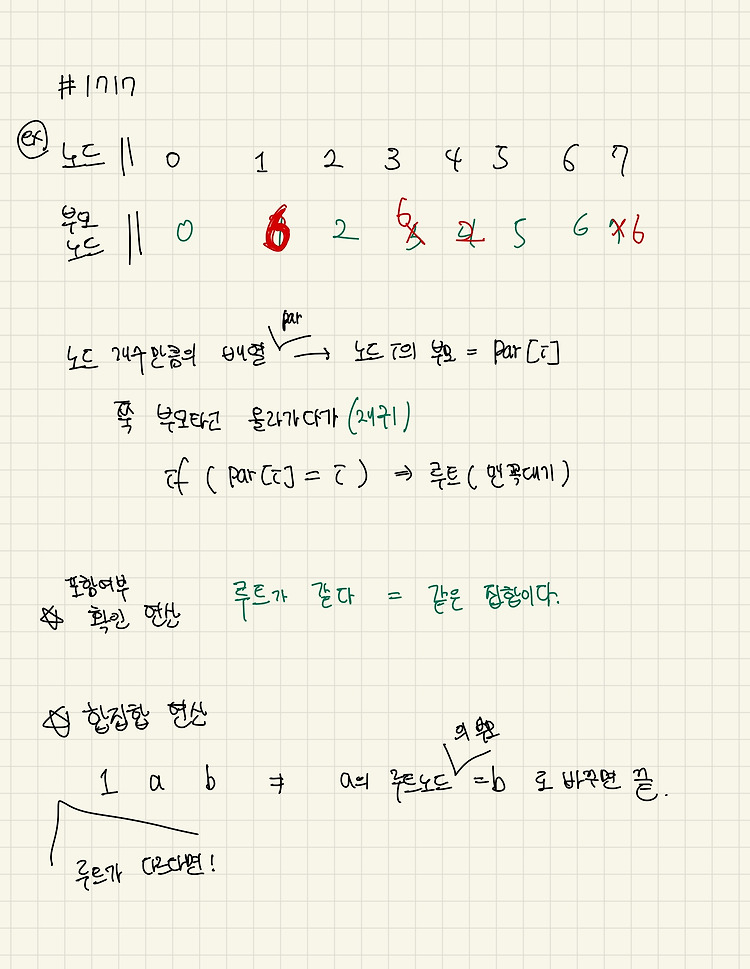 #1717
ex 노드 || 0 1 2 3 4 5 6 7
부모 노드 || 0 6 2 6 2 5 6 6
노드 개수만큼의 배열 par → 노드 i의 부모 = par[i]
쭉 부모타고 올라가다가 (재귀)
if ( par[i] = i ) ⇒ 루트 ( 맨 꼭대기 )
☆ 포함여부 확인 연산 루트가 같다 = 같은 집합이다.
☆ 합집합 연산
1 a b ⇒ a의 루트노드의 부모 = b 로 바꾸면 끝.
루트가 다르다면!